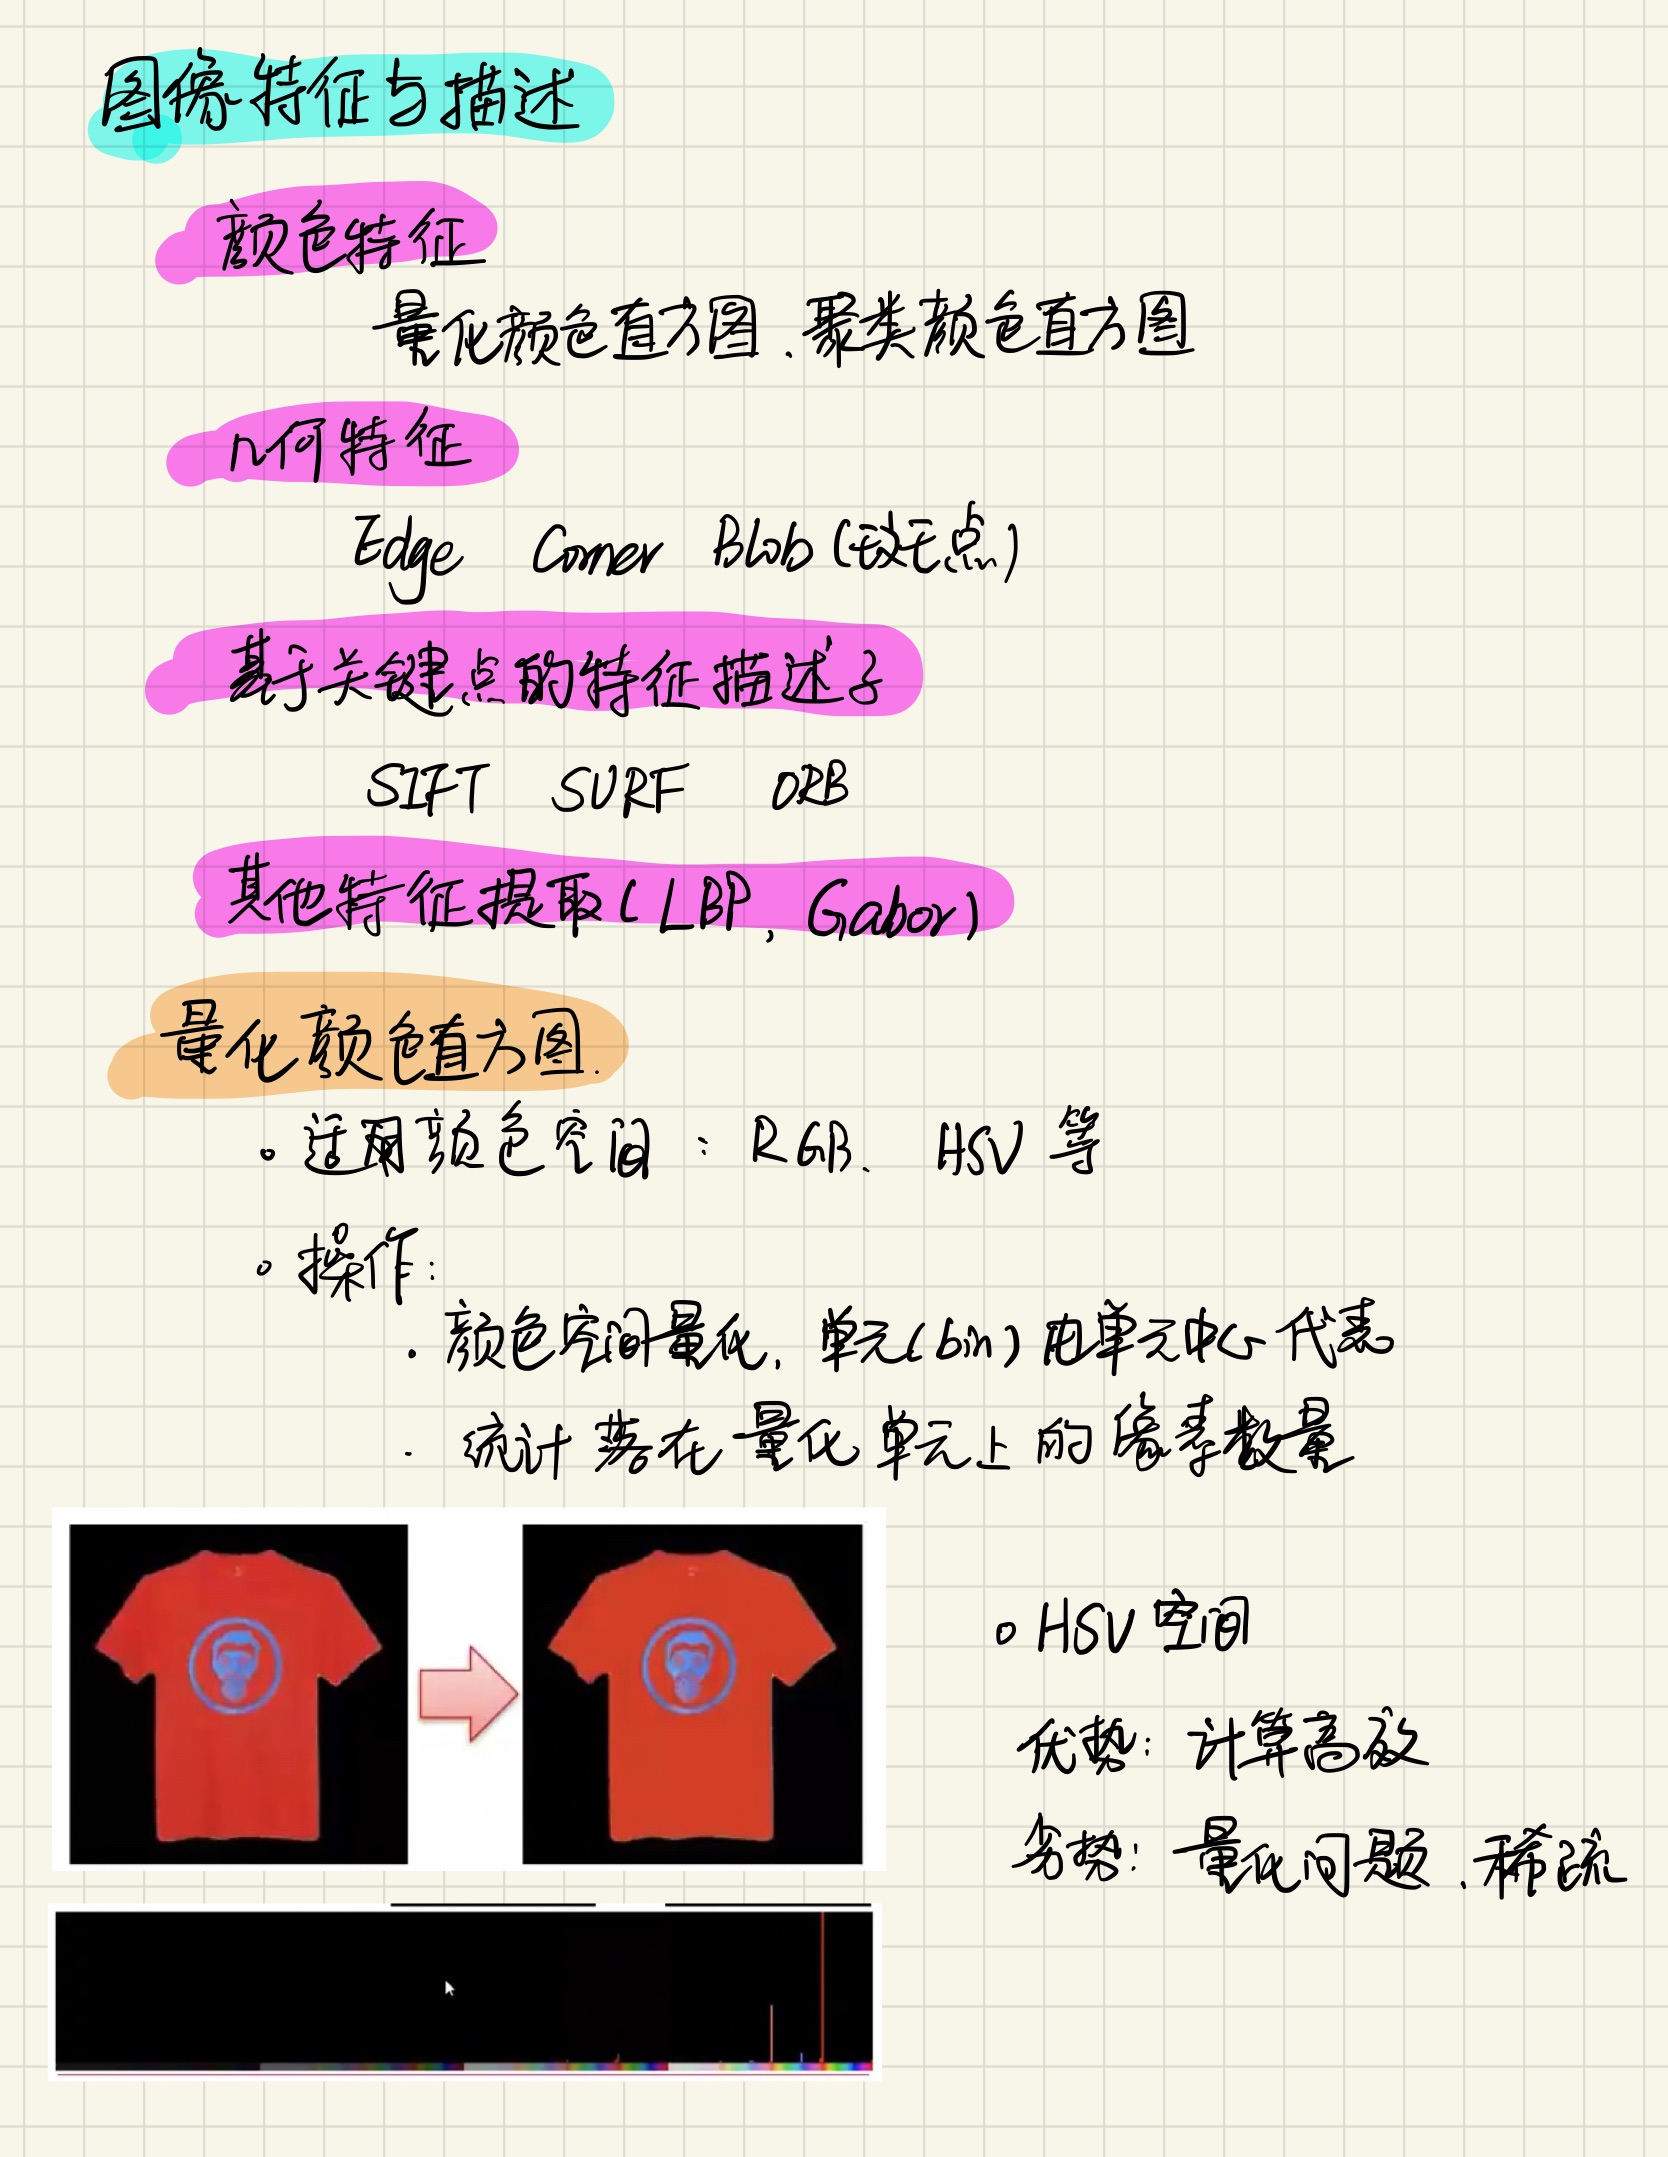 图像特征与描述
颜色特征
量化颜色直方图、聚类颜色直方图
几何特征
Edge Corner Blob(斑点)
基于关键点的特征描述子
SIFT SURF ORB
其他特征提取(LBP, Gabor)
量化颜色直方图.
。适用颜色空间:RGB、HSV等
。操作:
· 颜色空间量化, 单元(bin)由单元中心代表
· 统计落在量化单元上的像素数量
。HSV空间
优势: 计算高效
劣势: 量化问题、稀疏